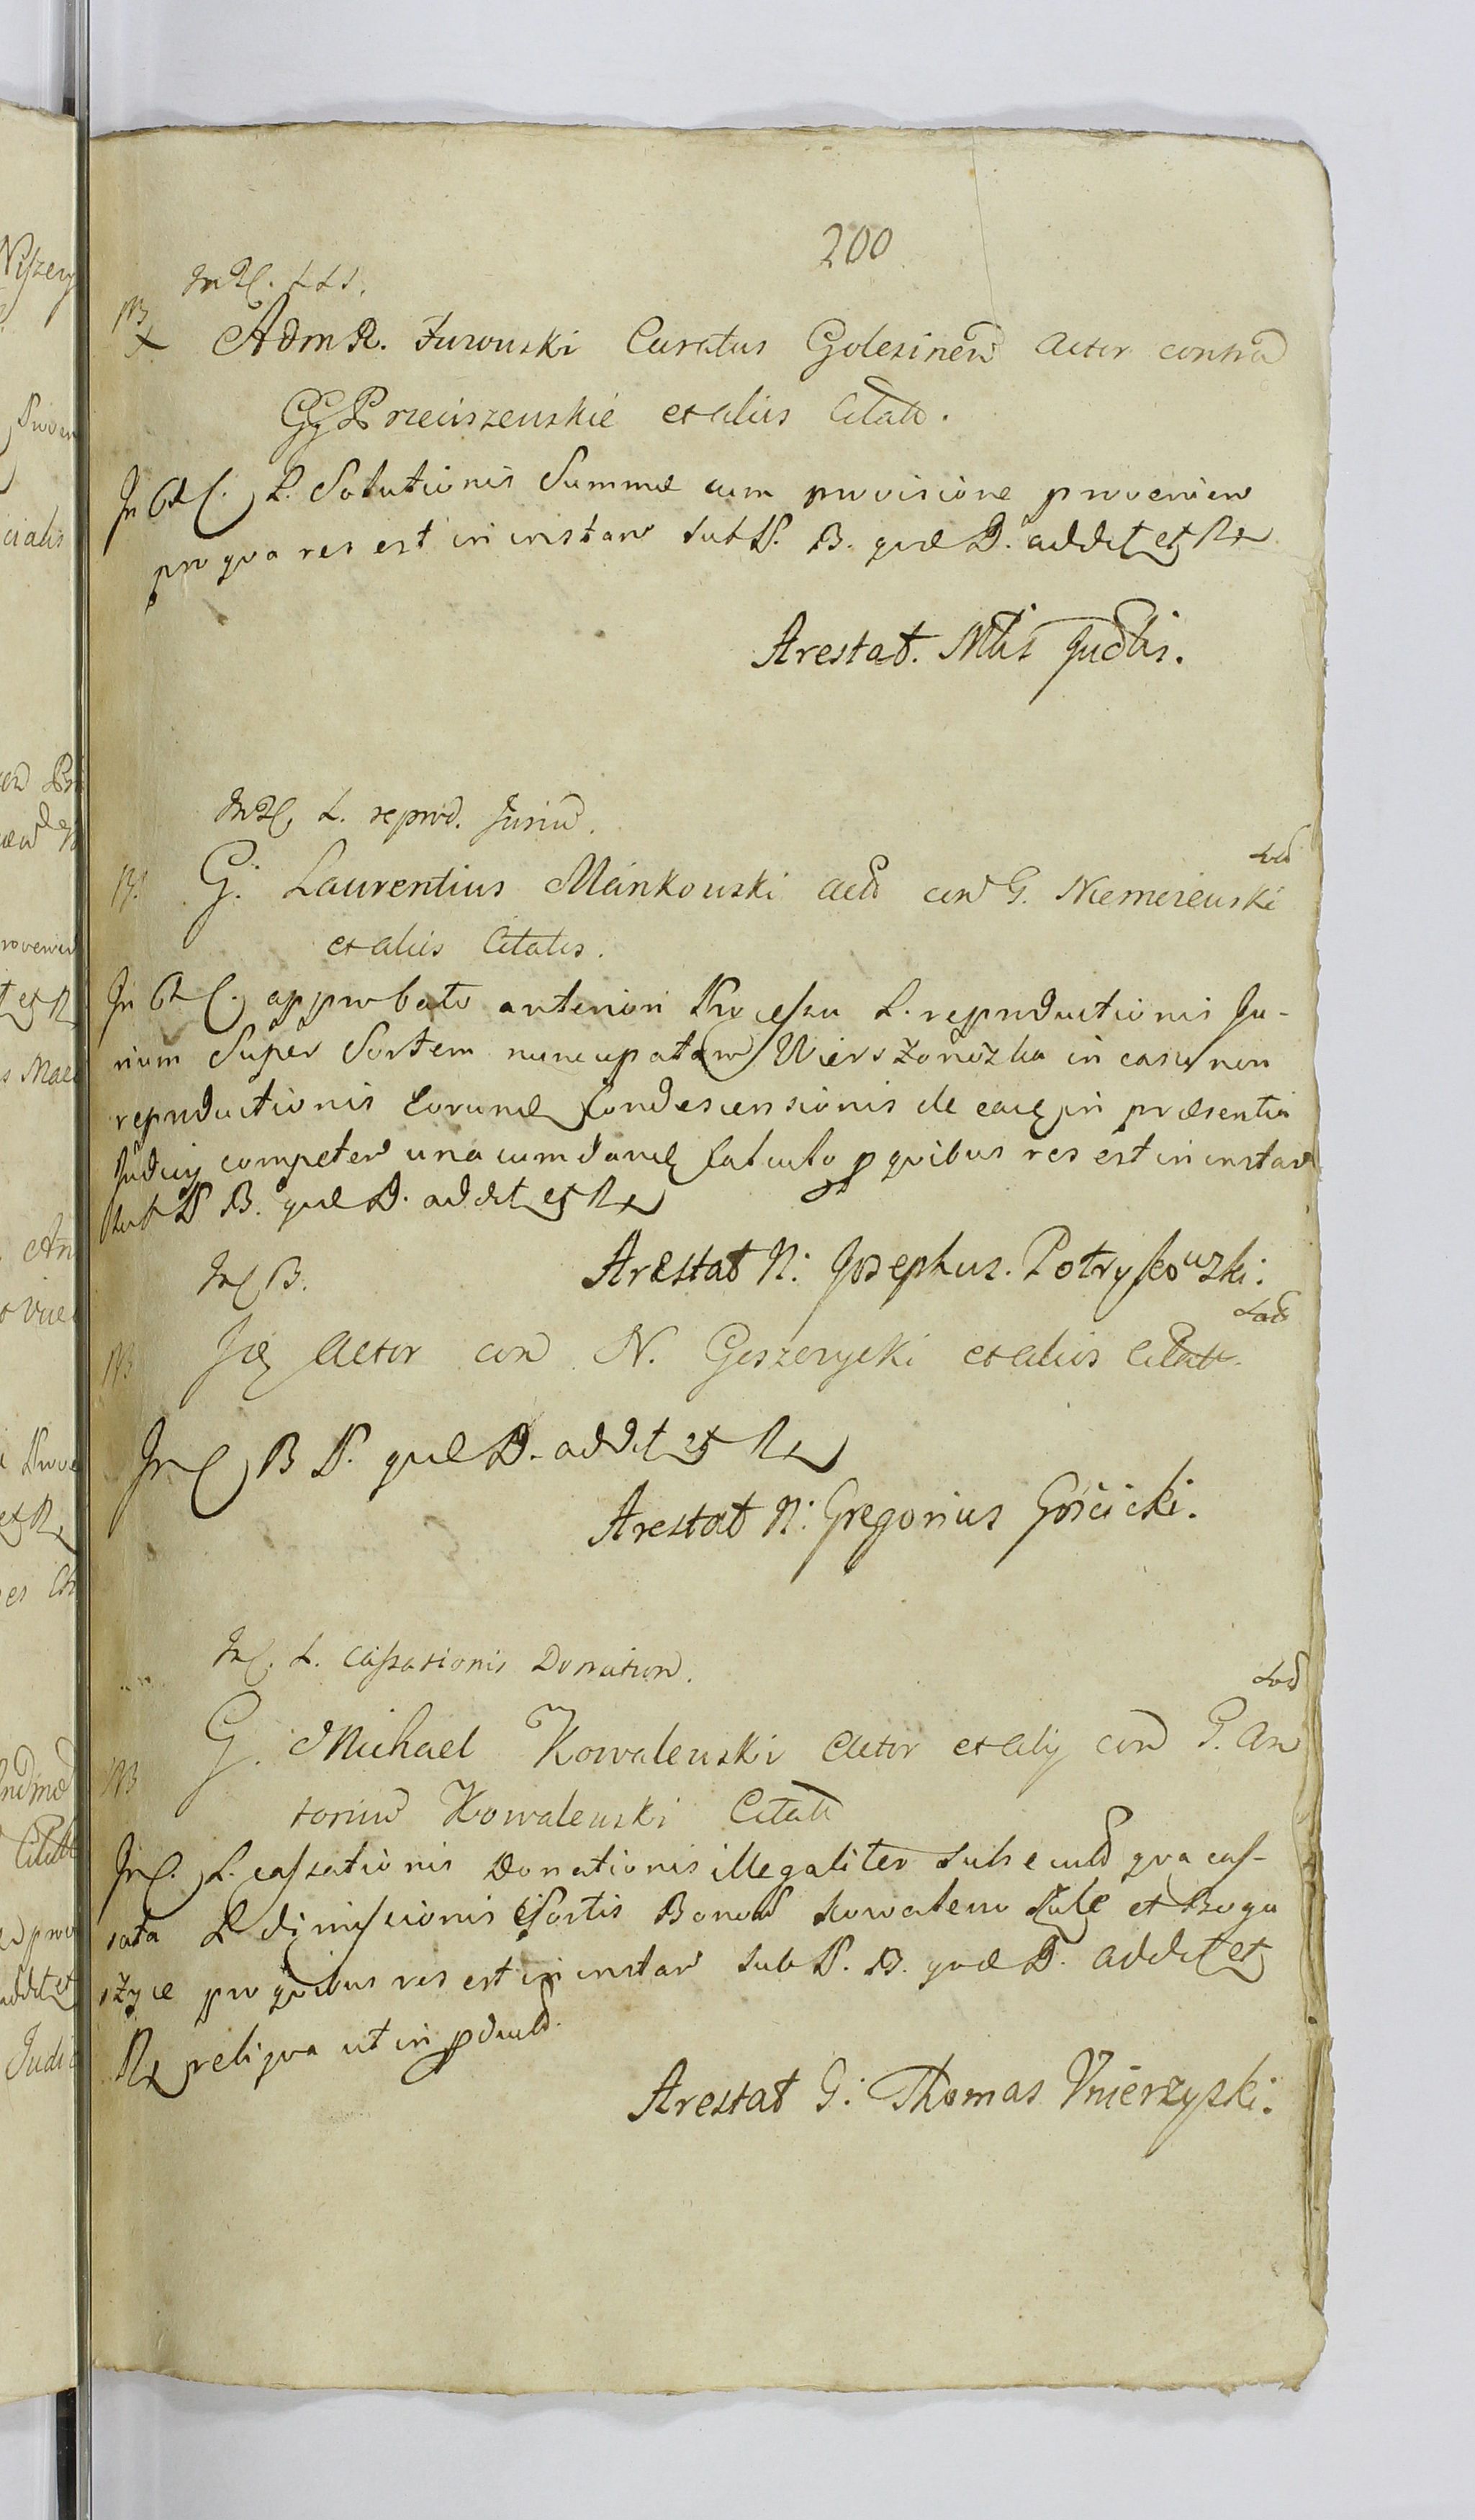 200
AdmR. Zurowski Curatus Golesinen Actor contra
GG Przeciszewskie et aliis Citatt.
In C. L. Solutionis Summæ cum provisione provenien
pro qva res est in instan sub P. B. qvæ D. addet et R
Arestat. Mtis Judlis.
L. reprod. Jurium.
G. Laurentius Mankowski act con G. Niemirewski
et aliis Citatis.
In C. approbato anteriori Processu L. reproductionis Ju-
rium Super Sortem nuncupatam Wierszonozka in casu non
reproductionis Eorumq Condescensionis de eaq in præsentia
Judicij competen una cum damq Calculo p qvibus res est in instan
sub P B. qvæ D. addet et R
In C B.
Arestat N: Josephus Potrykowski.
Idq Actor con N. Goszczycki et aliis Citatt.
In C B P. qvæ D. addet et R
Arestat N: Gregorius Gościcki.
In C. L. Cassationis Donation.
G. Michael Kowalewski Actor et alij con G. An
tonium Kowalewski Citatt
In C. L. cassationis Donationis illegaliter subsecut qva cas-
sata L dimissionis Sortis Bonor Kowalewo et Bogu
szyce pro qvibus res est in instan sub P. B. qvæ D. addet et
R reliqva ut in
Arestat G: Thomas Unierzyski.